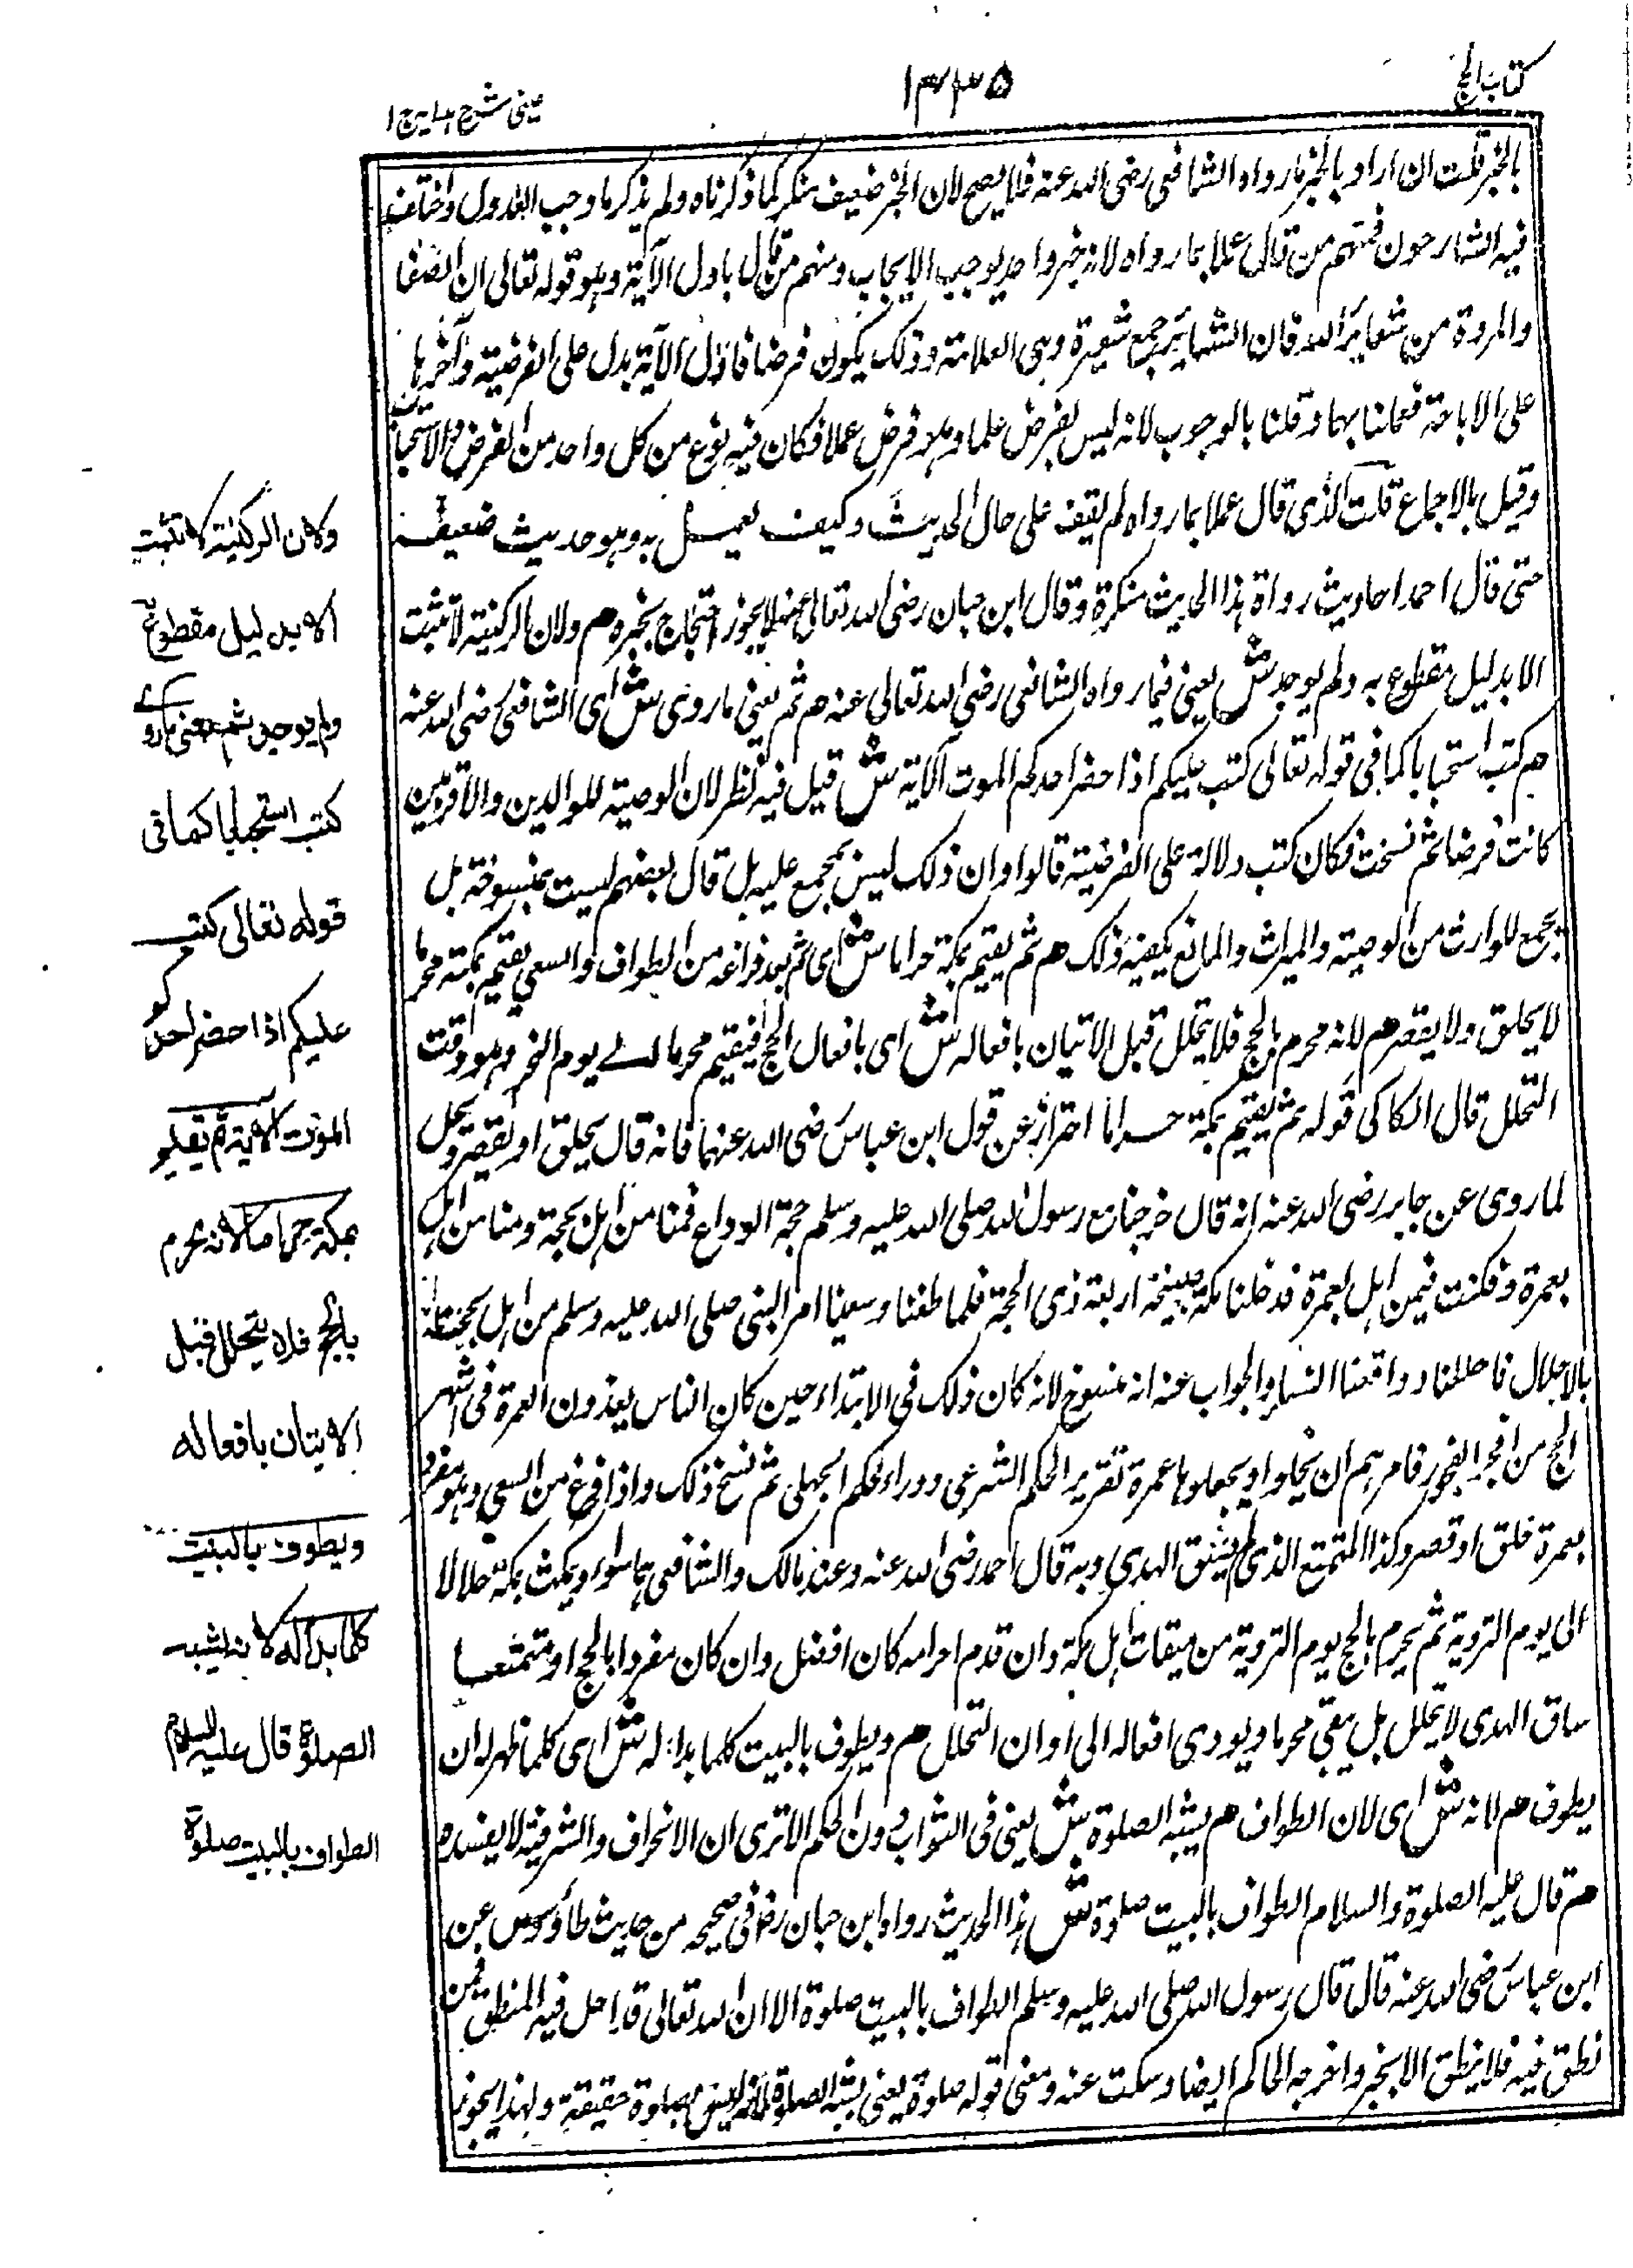 كتاب الحج
١٣٣٥
عينى شرح هدايه ج ١
بالخبر قلت ان اراد بالخبر ما رواه الشافعى رضى الله عنه فلا يصح لان الخبر ضعيف منكر كما ذكرناه ولم يذكر ما وجب العدول واختلف
فيه الشارحون فمنهم من قال عملا بما رواه لانه خبر واحد يوجب الايجاب ومنهم من قال باول الآية وهو قوله تعالى ان الصفا
والمروة من شعائر الله فان الشعائر جمع شعيرة وهى العلامة وذلك يكون فرضا فاول الآية يدل على الفرضية وآخرها
على الاباحة فعملنا بهما وقلنا بالوجوب لانه ليس بفرض علما وهو فرض عملا فكان فيه نوع من كل واحد من الفرض والاستحباب
وقيل بالاجماع قلت الذى قال عملا بما رواه لم يقف على حال الحديث وكيف يعمل به وهو حديث ضعيف
حتى قال احمد احاديث رواة هذا الحديث منكرة وقال ابن حبان رضى الله تعالى عنه لا يجوز احتجاج بخبره هم ولان الركنية لا تثبت
الا بدليل مقطوع به ولم يوجد ش يعنى فيما رواه الشافعى رضى الله تعالى عنه هم ثم يعنى ما روى ش اى الشافعى رضى الله عنه
هم كتب استحبابا كما فى قوله تعالى كتب عليكم اذا حضر احدكم الموت الآية ش قيل فيه نظر لان الوصية للوالدين والاقربين
كانت فرضا ثم نسخت فكان كتب دلالة على الفرضية قالوا وان ذلك ليس بمجمع عليه بل قال بعضهم ليست بمنسوخة بل
يجمع للوارث من الوصية والميراث والمانع يكفيه ذلك هم ثم يقيم بمكة حراما ش اى ثم بعد فراغه من الطواف والسعى يقيم بمكة محرما
لا يحلق ولا يقصر هم لانه محرم بالحج فلا يتحلل قبل الاتيان بافعاله ش اى بافعال الحج فيقيم محرما الى يوم النحر وهو وقت
التحلل قال الكاكى قوله ثم يقيم بمكة حراما احتراز عن قول ابن عباس رضى الله عنهما فانه قال يحلق او يقصر ويحل
لما روى عن جابر رضى الله عنه انه قال خرجنا مع رسول الله صلى الله عليه وسلم حجة الوداع فمنا من اهل بحجة ومنا من اهل
بعمرة وكنت فيمن اهل بعمرة فدخلنا مكة صبيحة اربعة ذى الحجة فلما طفنا وسعينا امر النبى صلى الله عليه وسلم من اهل بحجة
بالاحلال فاحللنا وواقعنا النساء والجواب عنه انه منسوخ لانه كان ذلك فى الابتداء حين كان الناس يعدون العمرة فى اشهر
الحج من افجر الفجور فامرهم ان يحلوا ويجعلوها عمرة تقرير الحكم الشرعى ودراء لحكم الجهلى ثم نسخ ذلك واذا فرغ من السعى وهو مفرد
بعمرة حلق او قصر وكذا المتمتع الذى لم يسق الهدى وبه قال احمد رضى الله عنه وعند مالك والشافعى هما سواء ويمكث بمكة حلالا
الى يوم التروية ثم يحرم بالحج يوم التروية من ميقات اهل مكة وان قدم احرامه كان افضل وان كان مفردا بالحج او متمتعا
ساق الهدى لا يتحلل بل يبقى محرما ويودى افعاله الى اوان التحلل هم ويطوف بالبيت كلما بدا له ش اى كلما ظهر له ان
يطوف هم لانه ش اى لان الطواف هم يشبه الصلوة ش يعنى فى الثواب دون الحكم الا ترى ان الانحراف والشرفية لا يفسده
هم قال عليه الصلوة والسلام الطواف بالبيت صلوة ش هذا الحديث رواه ابن حبان رض فى صحيحه من حديث طاؤوس عن
ابن عباس رضى الله عنه قال قال رسول الله صلى الله عليه وسلم الطواف بالبيت صلوة الا ان الله تعالى قد احل فيه المنطق فمن
نطق فيه فلا ينطق الا بخير واخرجه الحاكم ايضا وسكت عنه ومعنى قوله صلوة يعنى يشبه الصلوة لانه ليس بصلوة حقيقة ولهذا يجوز
ولان الركنية لا تثبت
الا بدليل مقطوع به
ولم يوجد ثم معنى ما روى
كتب استحبابا كما فى
قوله تعالى كتب
عليكم اذا حضر احدكم
الموت الآية ثم يقيم
بمكة حراما لانه محرم
بالحج فلا يتحلل قبل
الاتيان بافعاله
ويطوف بالبيت
كلما بدا له لانه يشبه
الصلوة قال عليه السلام
الطواف بالبيت صلوة